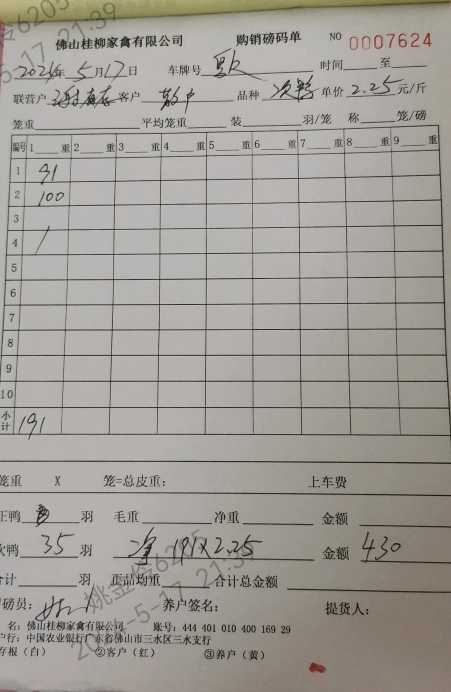 佛山桂柳家禽有限公司 购销磅码单 NO 0007624
2021年 5月17日 车牌号 时间 至
联营户 客户 散户 品种 次鸭 单价 2.25 元/斤
笼重 平均笼重 装 羽/笼 称 笼/磅
编号 1 重 2 重 3 重 4 重 5 重 6 重 7 重 8 重 9 重
1 91
2 100
3
4 /
5
6
7
8
9
10
小计 191
笼重 X 笼=总皮重: 上车费
正鸭 羽 毛重 净重 金额
次鸭 35 羽 净 191×2.25 金额 430
合计 羽 正品均重 合计总金额
司磅员: 养户签名: 提货人:
名: 佛山桂柳家禽有限公司 账号: 444 401 010 400 169 29
户行: 中国农业银行广东省佛山市三水区三水支行
存根(白) ②客户(红) ③养户(黄)